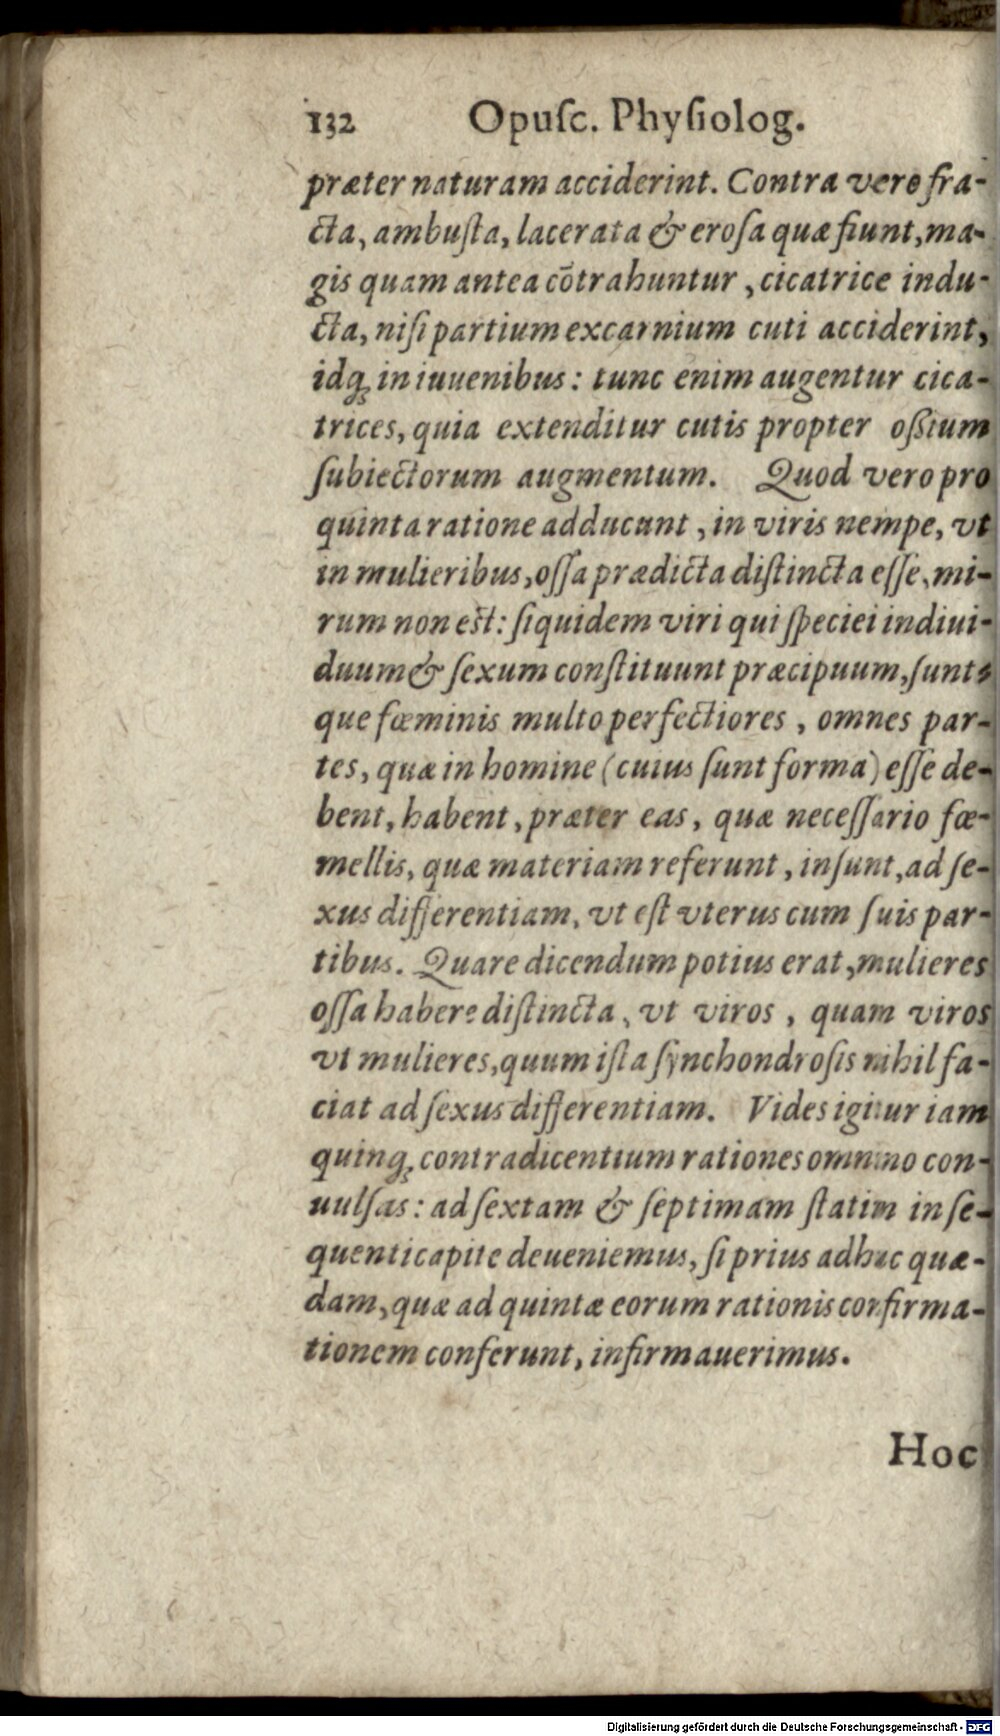 132 Opuſc. Phyſiolog.
præter naturam acciderint. Contra vero fra-
cta, ambuſta, lacerata & eroſa quæ fiunt, ma-
gis quam antea cōtrahuntur, cicatrice indu-
cta, niſi partium excarnium cuti acciderint,
idq́; in iuuenibus: tunc enim augentur cica-
trices, quia extenditur cutis propter oſsium
ſubiectorum augmentum. Quod vero pro
quinta ratione adducunt, in viris nempe, vt
in mulieribus, oſſa prædicta diſtincta eſſe, mi-
rum non est: ſiquidem viri qui ſpeciei indiui-
duum & ſexum conſtituunt præcipuum, ſunt-
que fœminis multo perfectiores, omnes par-
tes, quæ in homine (cuius ſunt forma) eſſe de-
bent, habent, præter eas, quæ neceſſario fœ-
mellis, quæ materiam referunt, inſunt, ad ſe-
xus differentiam, vt eſt vterus cum ſuis par-
tibus. Quare dicendum potius erat, mulieres
oſſa habere diſtincta, vt viros, quam viros
vt mulieres, quum iſta ſynchondroſis nihil fa-
ciat ad ſexus differentiam. Vides igitur iam
quinq; contradicentium rationes omnino con-
uulſas: ad ſextam & ſeptimam ſtatim in ſe-
quenti capite deueniemus, ſi prius adhuc quæ-
dam, quæ ad quintæ eorum rationis confirma-
tionem conferunt, infirmauerimus.
Hoc
Digitalisierung gefördert durch die Deutsche Forschungsgemeinschaft - DFG